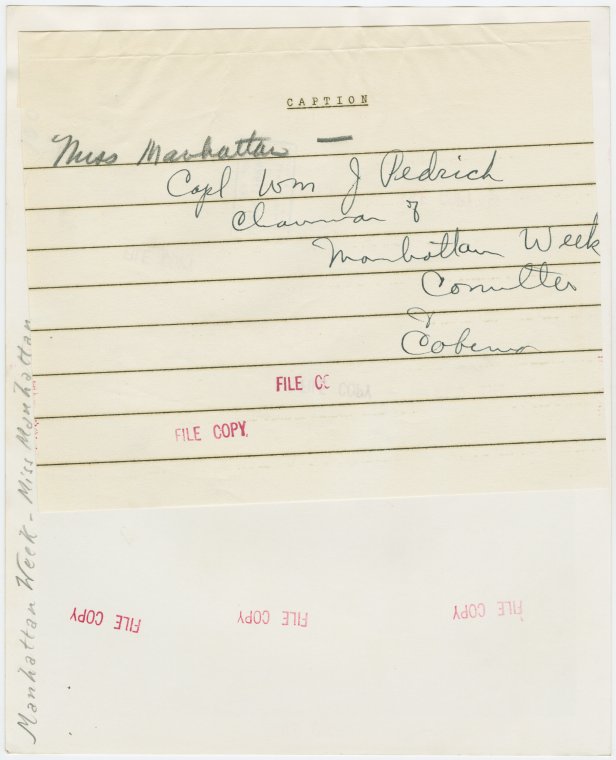 CAPTION
Miss Manhattan —
Capt Wm J Pedrich
Chairman of
Manhattan Week
Committee
&
FILE CO COPY
FILE COPY
FILE COPY
FILE COPY
FILE COPY
Manhattan Week - Miss Manhattan